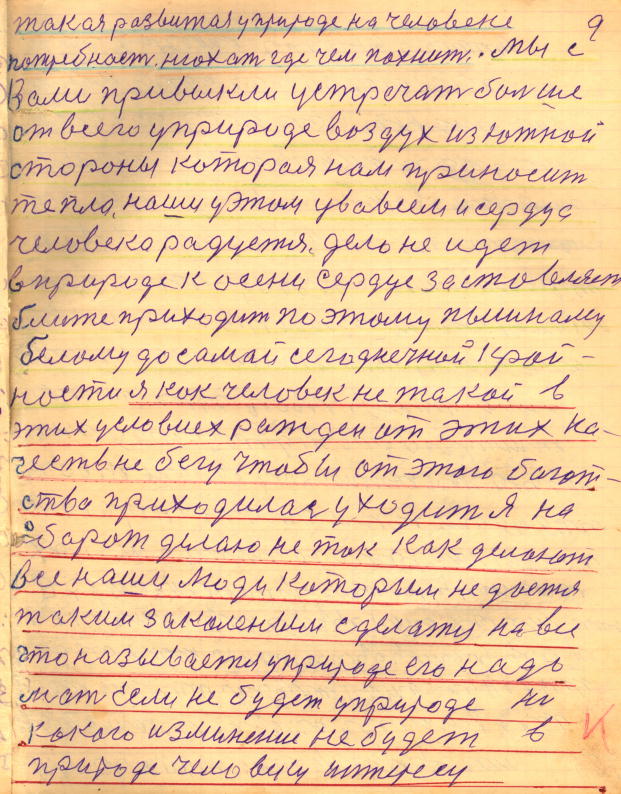 9
такая развитая уприроде на человеке
потребност. нюхат где чем пахнит. Мы с
Вами привыкли устречат болше
от всего уприроде воздух из южной
стороны которая нам приносит
тепла, наши уэтом увавсем и сердце
человека радуется. дело не идет
вприроде к осени сердце заставляет
ближе приходит поэтому
белому до самай сегоднечной край-
ности я как человек не такой в
этих условиех ражден от этих ка-
честв не бегу чтобы от этого богот-
ства приходилас уходит Я на
оборот делаю не так как делают
все наши люди которым не дается
таким закаленым сделатся на ви
это называется уприроде его надо
мат Если не будет уприроде ни
какого изминение не будет в
природе человеку интересу
К